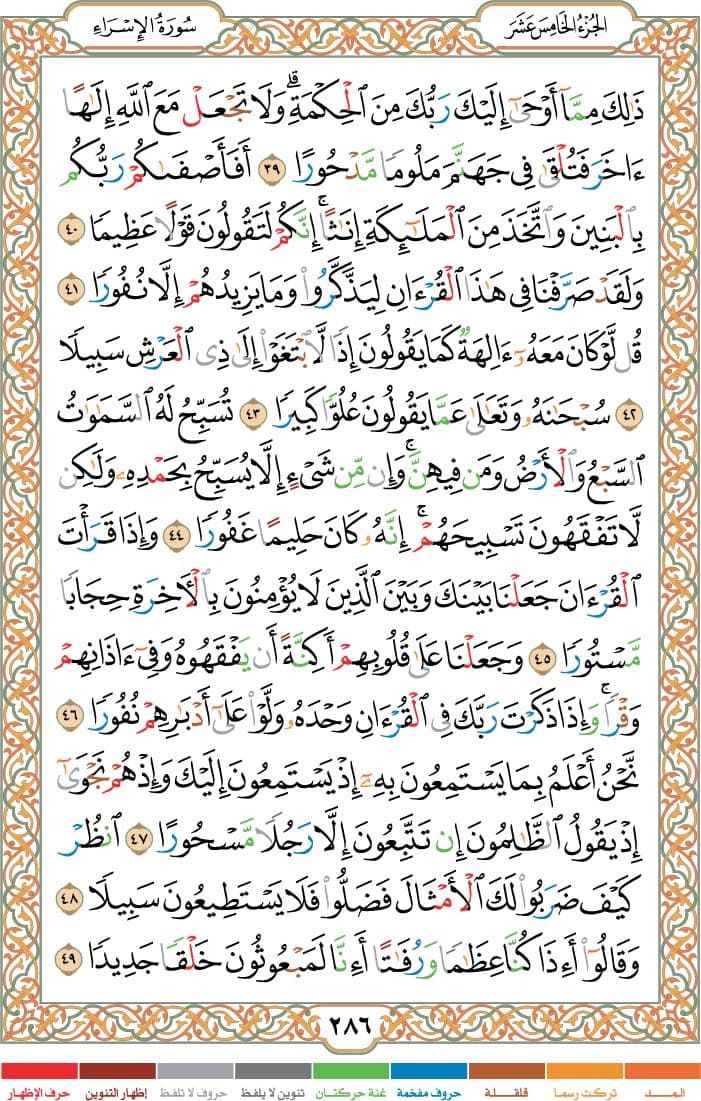 الجُزْءُ الخَامِسَ عَشَرَ
سُورَةُ الإِسْرَاءِ
ذَٰلِكَ مِمَّآ أَوْحَىٰٓ إِلَيْكَ رَبُّكَ مِنَ ٱلْحِكْمَةِ ۗ وَلَا تَجْعَلْ مَعَ ٱللَّهِ إِلَٰهًا
ءَاخَرَ فَتُلْقَىٰ فِى جَهَنَّمَ مَلُومًا مَّدْحُورًا ٣٩ أَفَأَصْفَىٰكُمْ رَبُّكُم
بِٱلْبَنِينَ وَٱتَّخَذَ مِنَ ٱلْمَلَٰٓئِكَةِ إِنَٰثًا ۚ إِنَّكُمْ لَتَقُولُونَ قَوْلًا عَظِيمًا ٤٠
وَلَقَدْ صَرَّفْنَا فِى هَٰذَا ٱلْقُرْءَانِ لِيَذَّكَّرُوا۟ وَمَا يَزِيدُهُمْ إِلَّا نُفُورًا ٤١
قُل لَّوْ كَانَ مَعَهُۥٓ ءَالِهَةٌ كَمَا يَقُولُونَ إِذًا لَّٱبْتَغَوْا۟ إِلَىٰ ذِى ٱلْعَرْشِ سَبِيلًا
٤٢ سُبْحَٰنَهُۥ وَتَعَٰلَىٰ عَمَّا يَقُولُونَ عُلُوًّا كَبِيرًا ٤٣ تُسَبِّحُ لَهُ ٱلسَّمَٰوَٰتُ
ٱلسَّبْعُ وَٱلْأَرْضُ وَمَن فِيهِنَّ ۚ وَإِن مِّن شَىْءٍ إِلَّا يُسَبِّحُ بِحَمْدِهِۦ وَلَٰكِن
لَّا تَفْقَهُونَ تَسْبِيحَهُمْ ۗ إِنَّهُۥ كَانَ حَلِيمًا غَفُورًا ٤٤ وَإِذَا قَرَأْتَ
ٱلْقُرْءَانَ جَعَلْنَا بَيْنَكَ وَبَيْنَ ٱلَّذِينَ لَا يُؤْمِنُونَ بِٱلْءَاخِرَةِ حِجَابًا
مَّسْتُورًا ٤٥ وَجَعَلْنَا عَلَىٰ قُلُوبِهِمْ أَكِنَّةً أَن يَفْقَهُوهُ وَفِىٓ ءَاذَانِهِمْ
وَقْرًا ۚ وَإِذَا ذَكَرْتَ رَبَّكَ فِى ٱلْقُرْءَانِ وَحْدَهُۥ وَلَّوْا۟ عَلَىٰٓ أَدْبَٰرِهِمْ نُفُورًا ٤٦
نَّحْنُ أَعْلَمُ بِمَا يَسْتَمِعُونَ بِهِۦٓ إِذْ يَسْتَمِعُونَ إِلَيْكَ وَإِذْ هُمْ نَجْوَىٰٓ
إِذْ يَقُولُ ٱلظَّٰلِمُونَ إِن تَتَّبِعُونَ إِلَّا رَجُلًا مَّسْحُورًا ٤٧ ٱنظُرْ
كَيْفَ ضَرَبُوا۟ لَكَ ٱلْأَمْثَالَ فَضَلُّوا۟ فَلَا يَسْتَطِيعُونَ سَبِيلًا ٤٨
وَقَالُوٓا۟ أَءِذَا كُنَّا عِظَٰمًا وَرُفَٰتًا أَءِنَّا لَمَبْعُوثُونَ خَلْقًا جَدِيدًا ٤٩
٢٨٦
المـــد تركت رسما قلقـــلة حروف مفخمة غنة حركتـان تنوين لا يلفظ حروف لا تلفظ إظهار التنوين حرف الإظهار